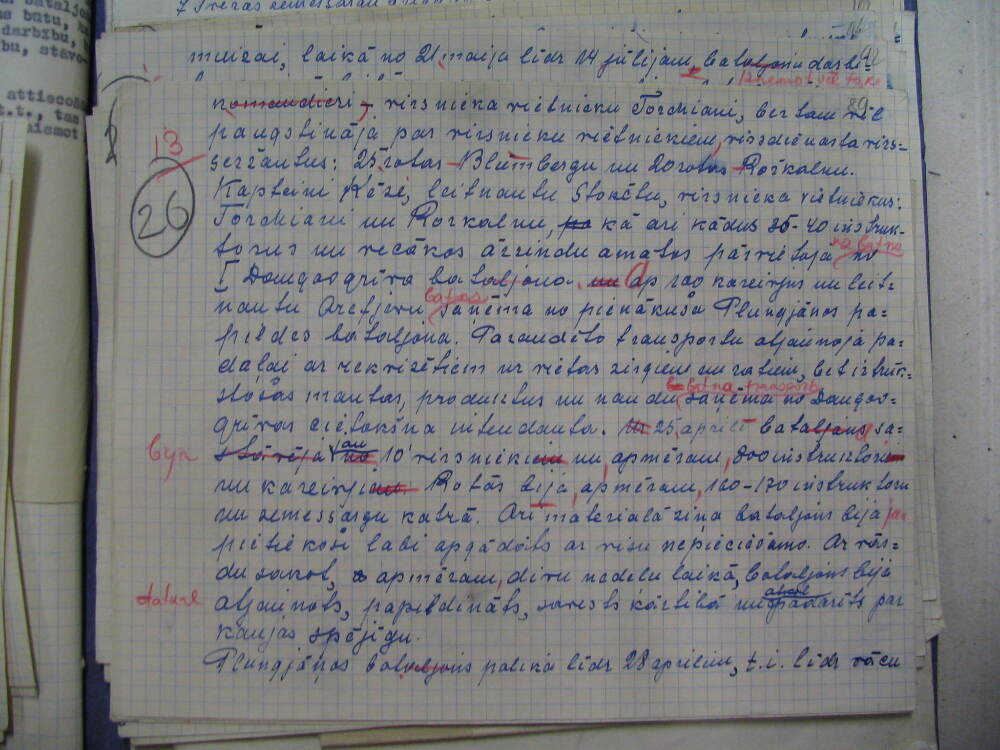 7 Trezas zemessardu
muižai, laikā no 21. maija līdz 14 jūlijam, bataljonu darbī-
89
komandieri, virsnieka vietnieku Torchiani, bet tam vēl
paugstināja par virsnieku vietniekiem, virsdienesta virs=
seržantus: 25 rotas Blumbergu un 20 rotas Rožkalnu.
13
26
Kapteini Ķēzē, leitnantu Stokēbu, virsnieka vietniekus:
Torchiani un Rožkalnu, kā arī kādus 35-40 instruk-
torus un vecākos ārrindu amatos pārvietoja no
na batno
I Daugavgrīva bataljona. un Ap 200 kareivjus un leit-
nantu Arefjevu saņēma no pienākušā Plungjānos pa=
pildes bataljona. Paraudēto transportu atjaunoja pa-
daļai ar rekvizētiem uz vietas zirgiem un ratiem, bet iztrūk-
batna transports
stošās mantas, produktus un naudu saņēma no Daugav-
grīvas cietokšņa intendanta. 25 aprilī bataljons sa-
byr
stāvēja no 10 virsniekiem un, apmēram, 800 instruktoriem
un kareivjiem. Rotās bija, apmēram, 160-170 instruktoru
un zemessargu katrā. Arī materialā ziņa bataljons bija
pietiekoši labi apgādāts ar visu nepieciešamo. Ar vār=
du sakot, apmēram, divu nedeļu laikā, bataljons bija
atjaunots, papildināts, savests kārtībā un padarīts par
kaujas spējīgu.
Plungjānos bataljons palika līdz 28 aprilim, t.i. līdz vācu